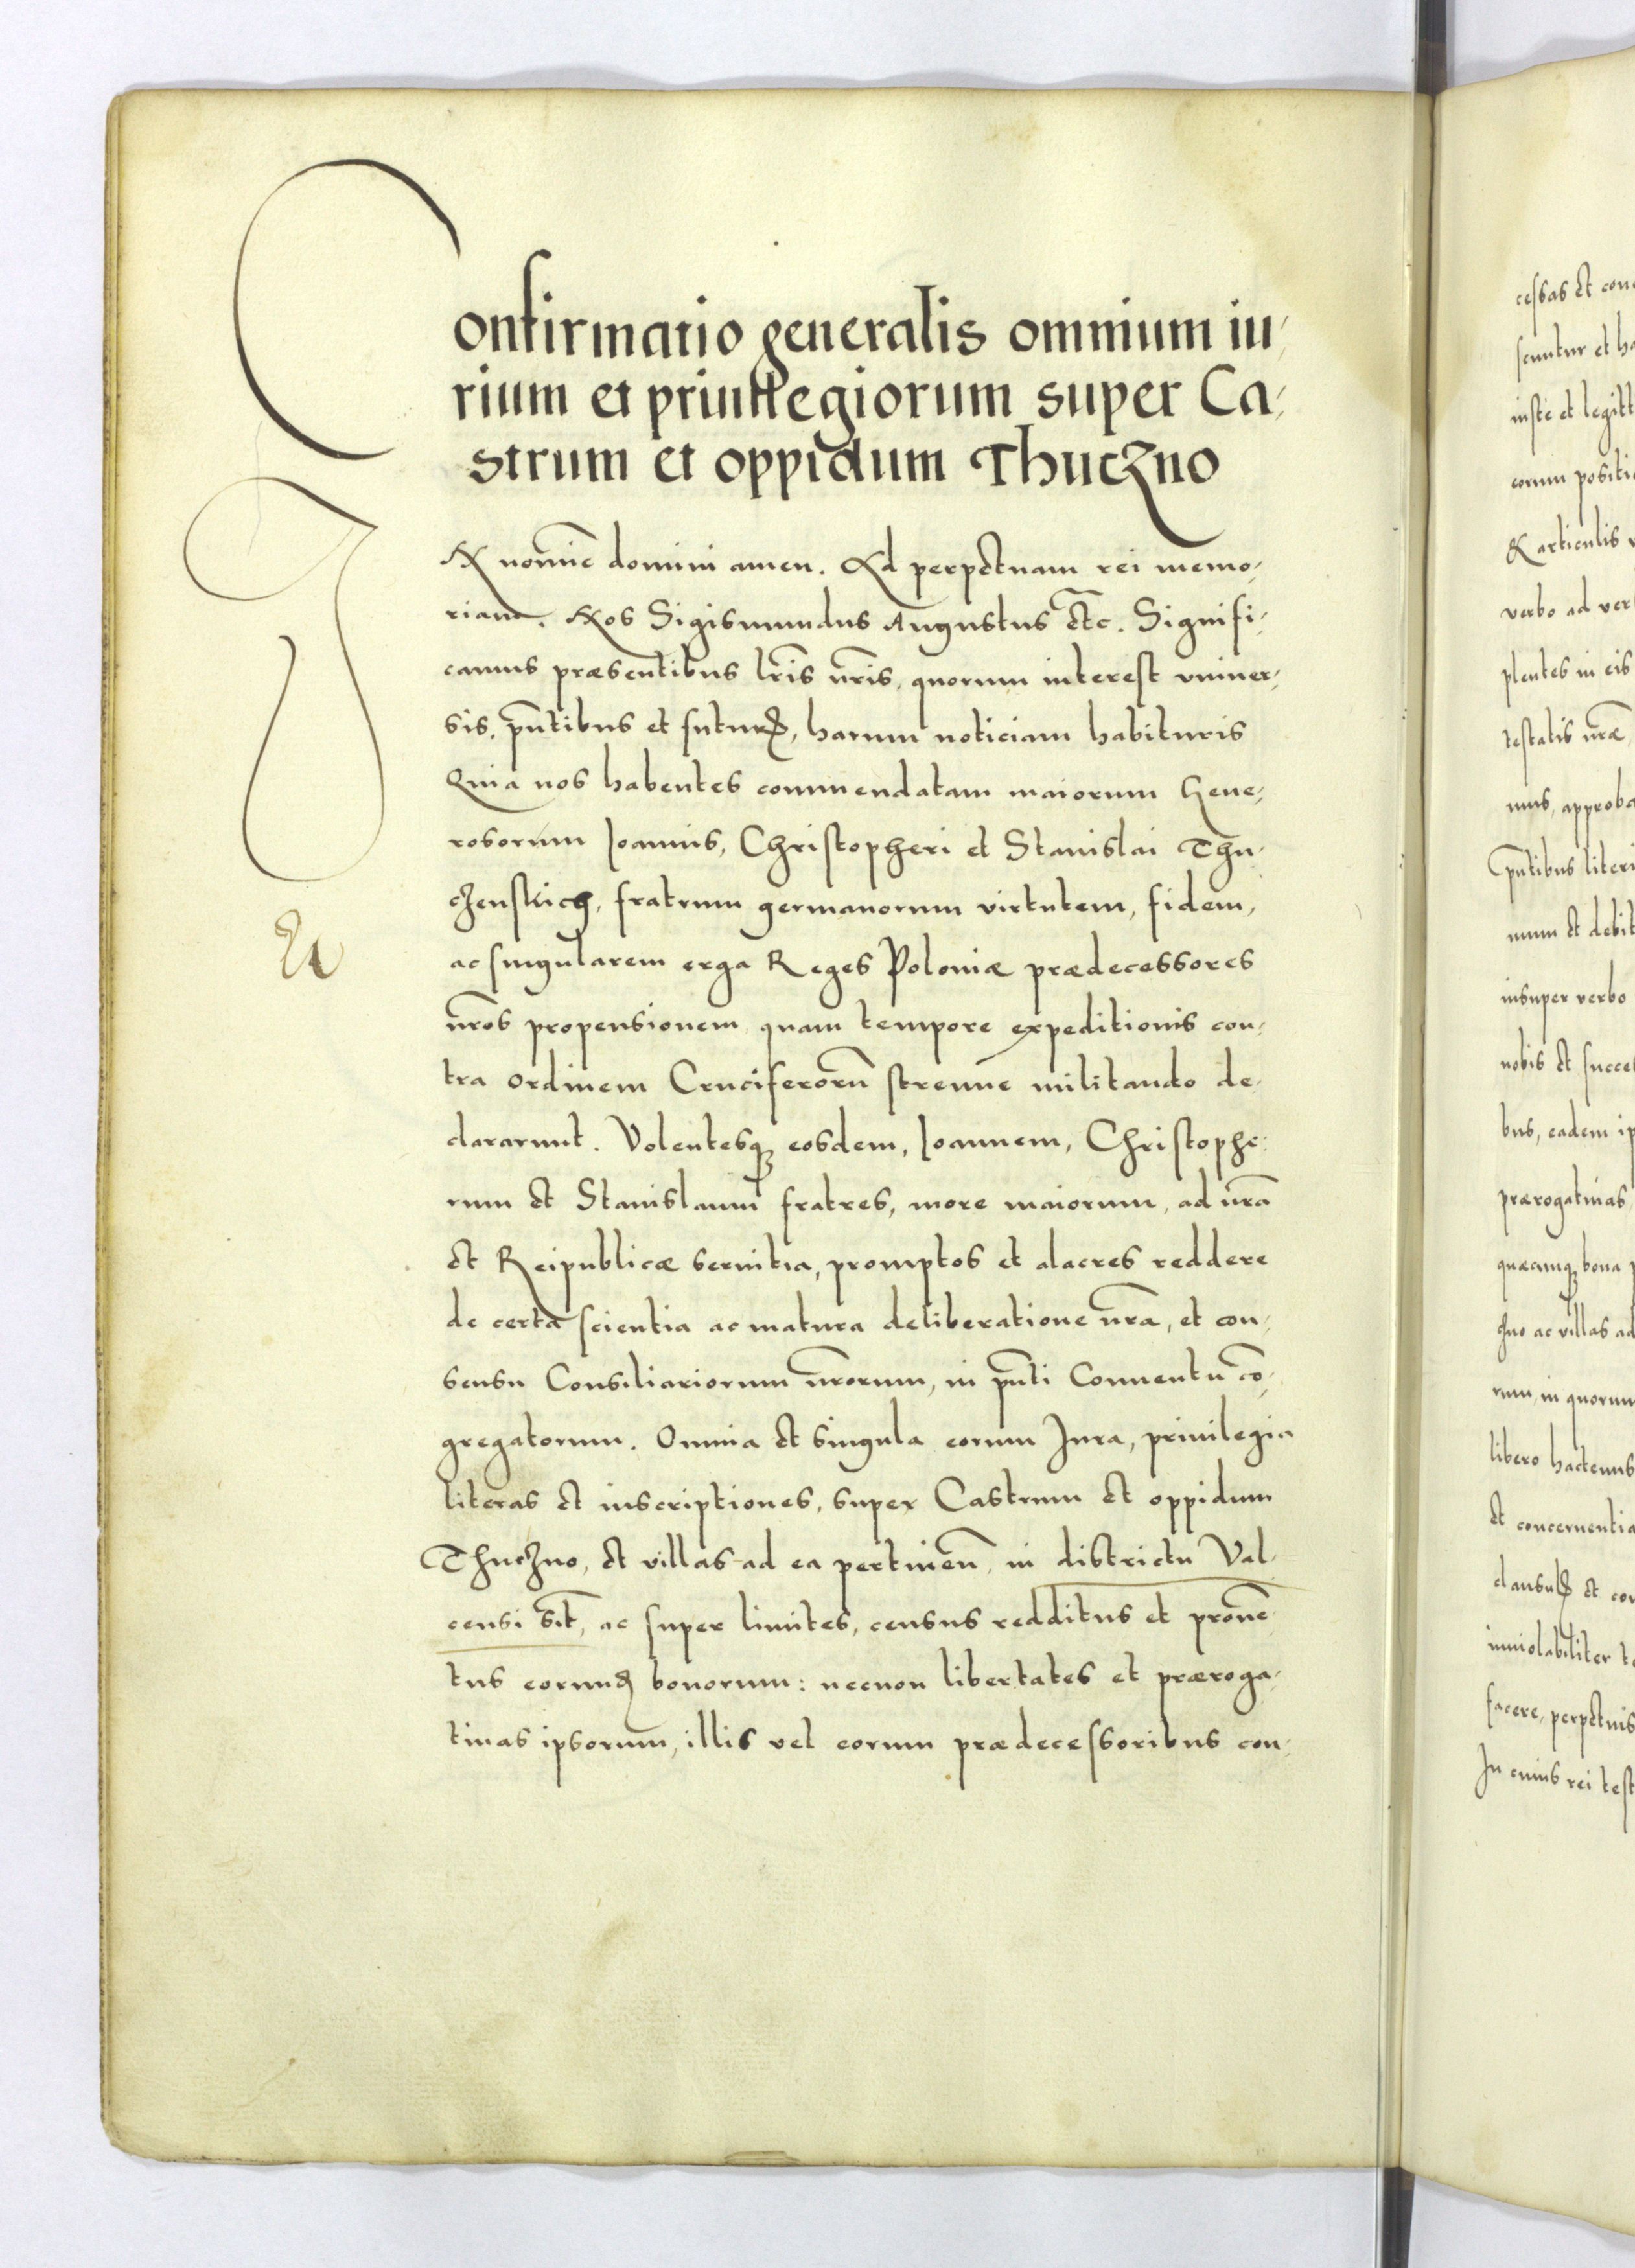 Confirmatio generalis omnium iu,
rium et priuilegiorum super Ca,
strum et oppidum Thuczno
IN nomīe domini amen. Ad perpetuam rei memo,
riam. Nos Sigismundus Augustus etc. Signifi,
camus præsentibus lr̄is nr̄is, quorum interest vniuer,
sis, pn̄tibus et futurꝭ, harum noticiam habituris
Quia nos habentes commendatam maiorum Gene,
rosorum Joannis, Christopheri et Stanislai Thu,
czenskich, fratrum germanorum virtutem, fidem,
ac singularem erga Reges Poloniæ prædecessores
nr̄os propensionem quam tempore expeditionis con,
tra ordinem Cruciferorū strenue militando de,
clararunt. Volentesqꝫ eosdem, Joannem, Christophe,
rum et Stanislaum fratres, more maiorum, ad nr̄a
et Reipublicæ seruitia, promptos et alacres reddere
de certa scientia ac matura deliberatione nr̄a, et con,
sensu Consiliariorum nr̄orum, in pn̄ti Conuentu cō,
gregatorum. Omnia et singula eorum Jura, priuilegia
literas et inscriptiones, super Castrum et oppidum
Thuczno, et villas ad ea pertinen̄, in districtu Val,
censi sit̄, ac super limites, census redditus et prouē
tus eorundꝫ bonorum: necnon libertates et præroga,
tiuas ipsorum, illis vel eorum prædecessoribus con,
cessas et con
iuste et legitt
eorum positi
articulis
verbo ad ver
plentes in eis
testatis nr̄æ
mus, approba
pn̄tibus literi
mum et debit
insuper verbo
nobis et succes
bus, eadem ip
prærogatiuas
quæcunqꝫ bona
zno ac villas ad
rum, in quorum
libero hactenus
et concernentia
clausulꝭ et con
inuiolabiliter te
facere, perpetuis
In cuius rei test